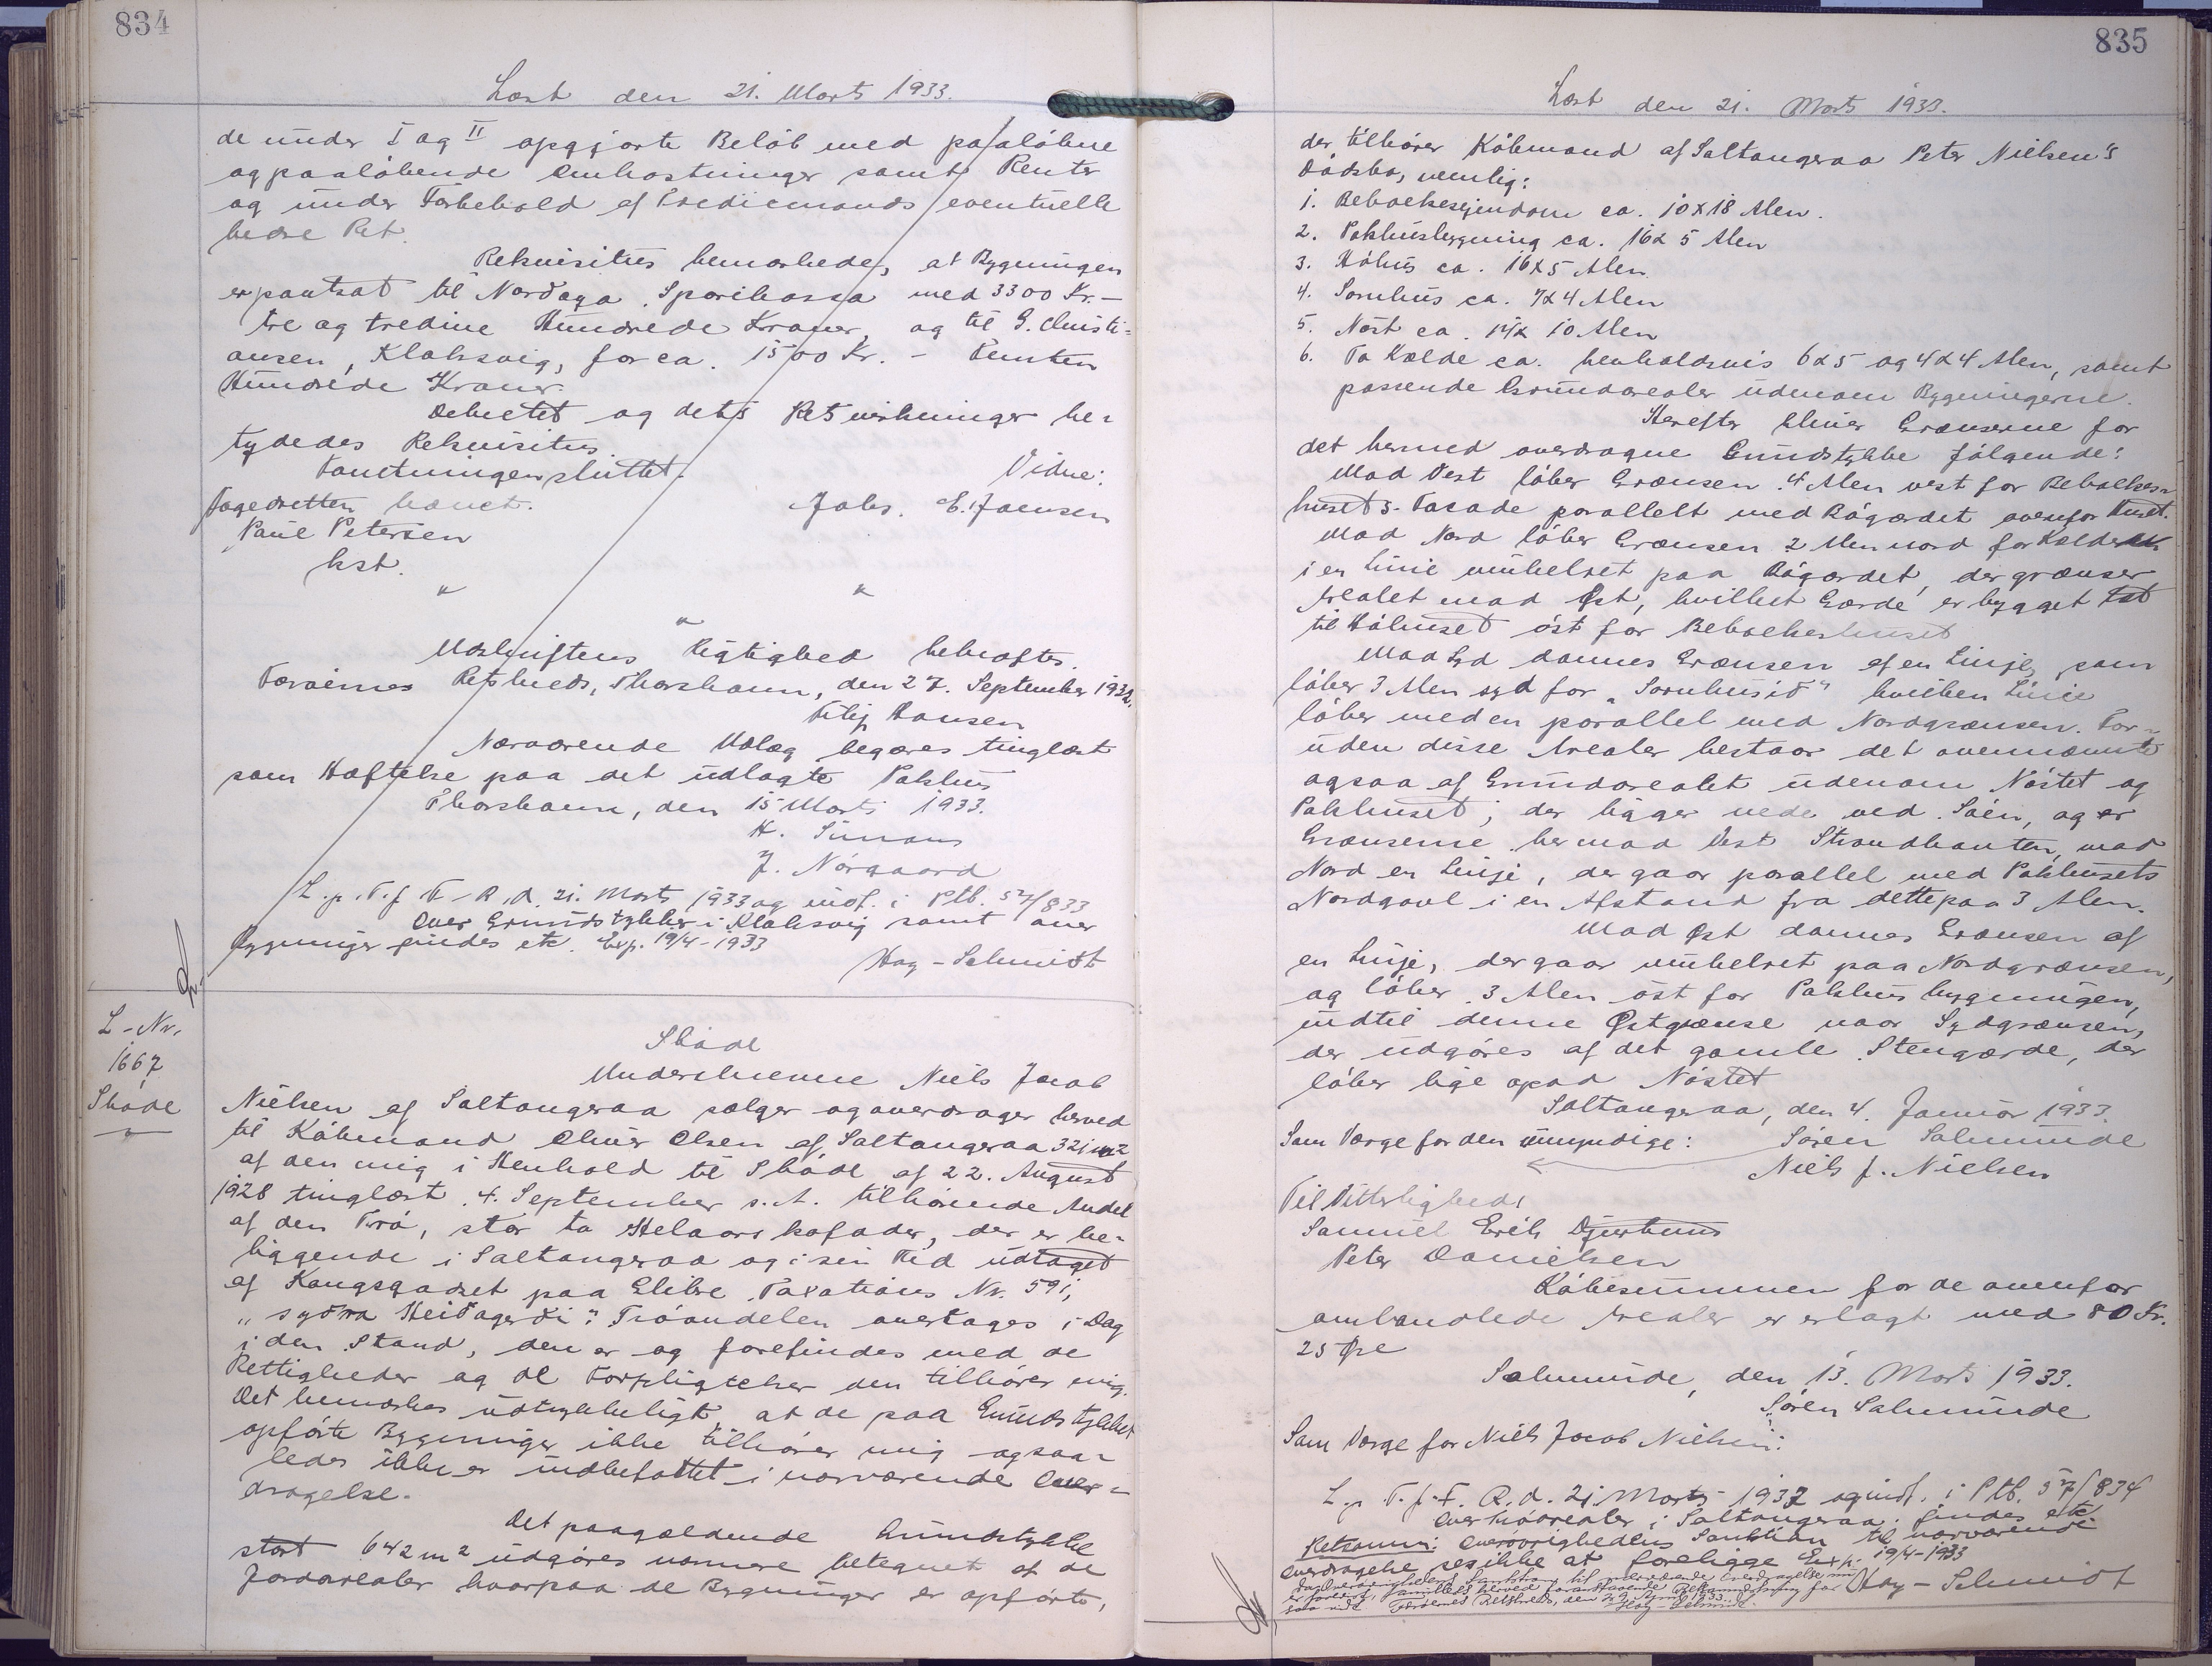 834
Læst den 21. Marts 1933.
de under I og II opgjorte Beløb med paaløbne
og paaløbende Omkostninger samt Renter
og under Forbehold af Tredjemands eventuelle
bedre Ret.
Rekvisitus bemærkede, at Bygningen
er pantsat til Nordoya Sparikassa med 3300 Kr. -
tre og tredive Hundrede Kroner, og til G. Christi=
ansen, Klaksvig, for ca. 1500 Kr. - Femten
Hundrede Kroner.
Dekretet og dets Retsvirkninger be=
tydedes Rekvisitus
Forretningen sluttet.
Vidne:
Fogedretten hævet.
Johs. E. Joensen
Paul Petersen
kst.
" "
"
Udskriftens Rigtighed bekræftes.
Færøernes Retskreds, Thorshavn, den 27. September 1932.
Filip Hansen
Nærværende Udlæg begæres tinglæst
som Hæftelse paa det udlagte Pakhus
Thorshavn, den 15 Marts 1933.
H. Simons
J. Nørgaard
L. p. T. f. F. R. d. 21. Marts 1933 og indf. i Ptb. 5 /833
Over Grundstykker i Klaksvig samt over
Bygninger findes etc. Exp. 19/4-1933
Hay-Schmidt
L-Nr.
1667
Skøde
Skøde
Underskrevne Niels Jacob
Nielsen af Saltangeraa sælger og overdrager herved
til Købmand Oliver Olsen af Saltangeraa 321 m2
af den mig i Henhold til Skøde af 22. August
1928 tinglæst 4. September s. A. tilhørende Andel
af den Trø, stor to Helaars kofoder, der er be=
liggende i Saltangeraa og i sin Tid udtaget
af Kongsgodset paa Glibre, Taxations Nr. 591,
"sydra Heidagerdi". Trøandelen overtages i Dag
i den Stand, den er og forefindes med de
Rettigheder og de Forpligtelser den tilhører mig.
Det bemærkes udtrykkeligt, at de paa Grundstykket
opførte Bygninger ikke tilhører mig og saa=
ledes ikke er indbefattet i nærværende Over=
dragelse.
Det paagældende Grundstykke
stort 642 m2 udgøres nærmere betegnet af de
Jordarealer hvorpaa de Bygninger er opførte,
835
Læst den 21. Marts 1933.
der tilhører Købmand af Saltangeraa Peter Nielsen's
Dødsbo, nemlig:
1. Beboelsesejendom ca. 10 x 18 Alen.
2. Pakhusbygning ca. 16 x 5 Alen
3. Høhus ca. 16 x 5 Alen.
4. Sornhus ca. 7 x 4 Alen
5. Nøst ca. 14 x 10 Alen
6. To Kælde ca. henholdsvis 6 x 5 og 4 x 4 Alen, samt
passende Grundarealer udenom Bygningerne.
Herefter bliver Grænserne for
det hermed overdragne Grundstykke følgende:
Mod Vest løber Grænsen 4 Alen vest for Beboelses=
huset's Facade parallelt med Bøgærdet ovenfor Huset.
Mod Nord løber Grænsen 2 Alen nord for Kælderen
i en Linie vinkelret paa Bøgærdet, der grænser
Arealet mod Øst, hvilket Gærde er bygget tæt
til Høhuset øst for Beboelseshuset
Mod Syd dannes Grænsen af en Linje, som
løber 3 Alen syd for "Sornhusið" hvilken Linie
løber med en parallel med Nordgrænsen. For=
uden disse Arealer bestaar det ovennævnte
ogsaa af Grundarealet udenom Nøstet og
Pakhuset; der ligger nede ved Søen, og er
Grænserne her mod Vest Strandkanten, mod
Nord en Linje, der gaar parallel med Pakhusets
Nordgavl i en Afstand fra dette paa 3 Alen.
Mod Øst dannes Grænsen af
en Linje, der gaar vinkelret paa Nordgrænsen,
og løber 3 Alen øst for Pakhusbygningen,
indtil denne Østgrænse naar Sydgrænsen,
der udgøres af det gamle Stengærde, der
løber lige opad Nøstet
Saltangeraa, den 4. Januar 1933.
Som Værge for den umyndige: Søren Salmunde
Niels J. Nielsen
Til Vitterlighed:
Samuel Erik Djurhuus
Peter Danielsen
Købesummen for de ovenfor
omhandlede Arealer er erlagt med 80 Kr.
25 Øre
Salmunde, den 13. Marts 1933.
Søren Salmunde
Som Værge for Niels Jacob Nielsen:
L. p. T. f. F. R. d. 21 Marts 1933 og indf. i Ptb. 5 /834
Over Trøarealer i Saltangeraa findes etc.
Retsanm: Overøvrighedens Sanktion til nærværende
Overdragelse ses ikke at foreligge Exp. 19/4-1933
Hay-Schmidt
Da Overøvrighedens Sanktion til nærværende Overdragelse nu
er forelagt, herved foranstaaende Retsanmærkning for
saa vidt Færøernes Retskreds, den April 1933.
Hay-Schmidt.